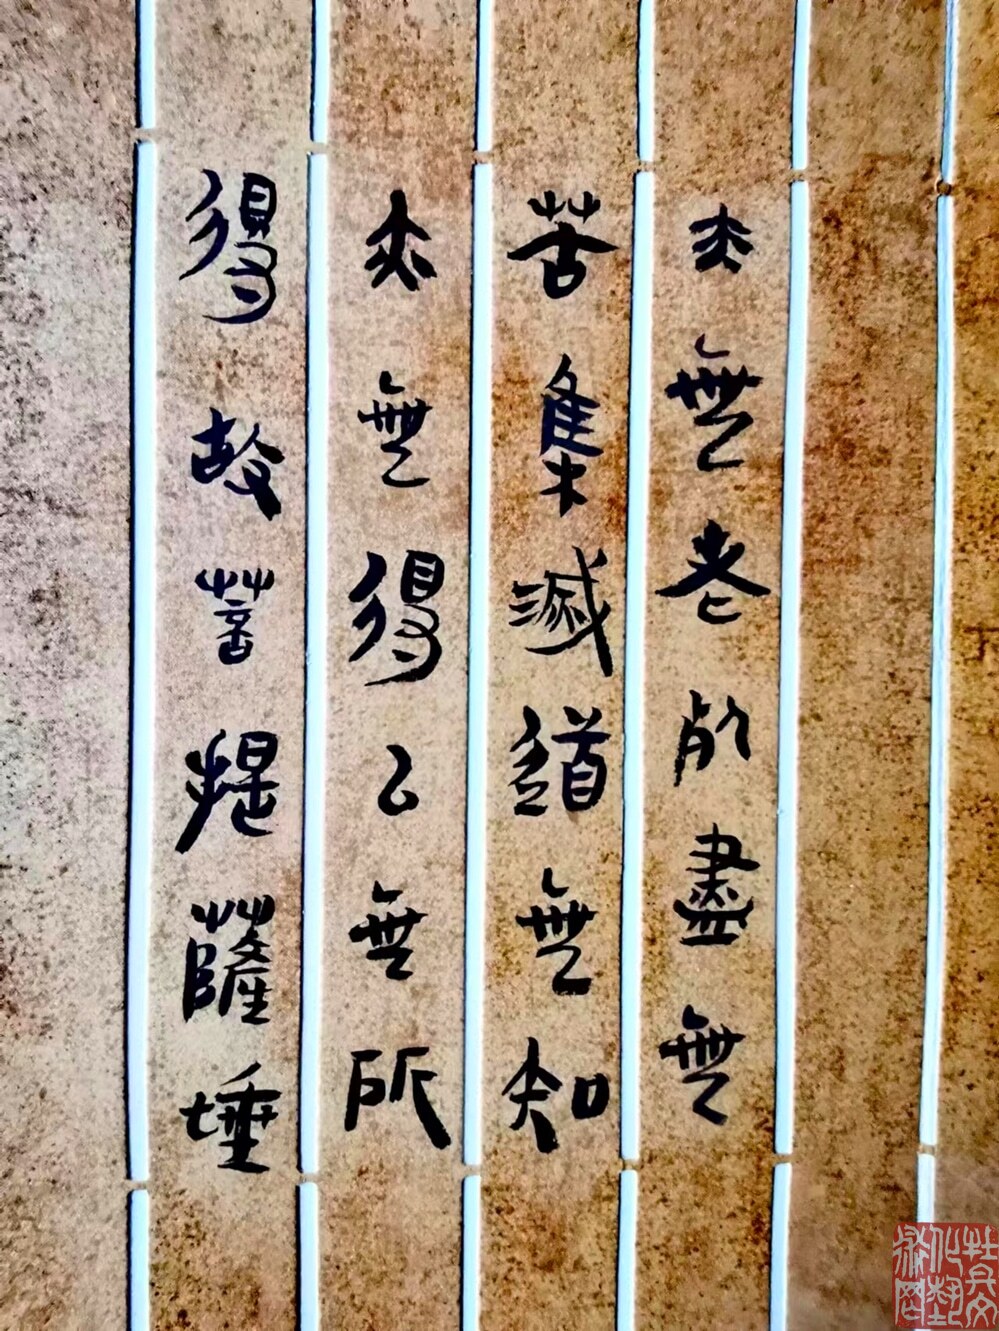 亦無老死盡無
苦集滅道無知
亦無得以無所
得故菩提薩埵